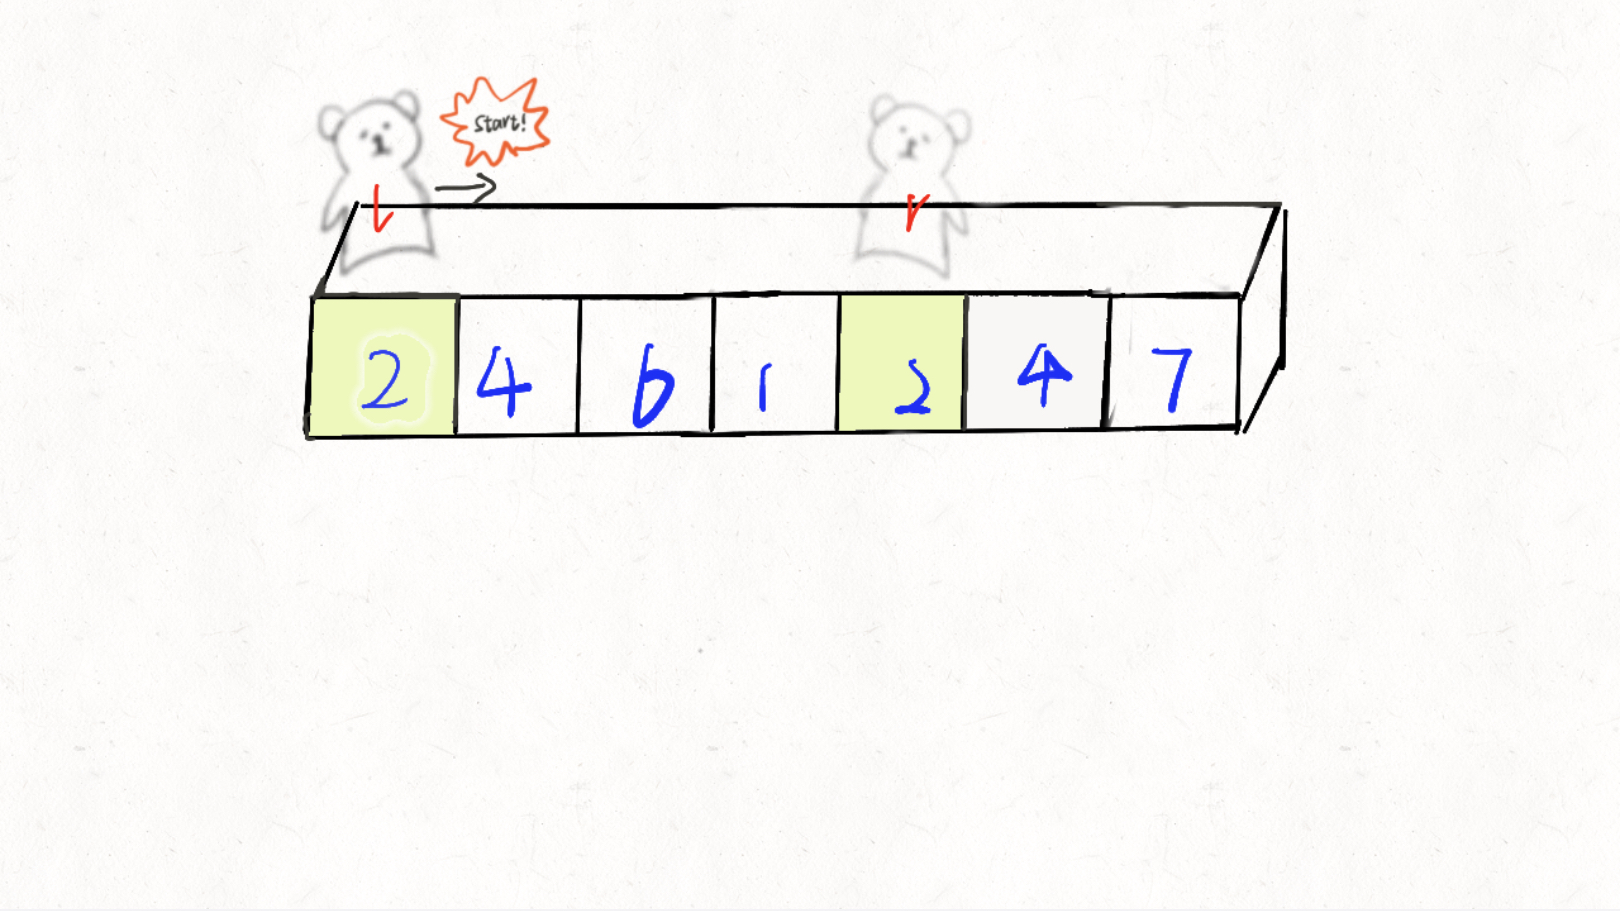 Start!
l r
2 4 6 1 2 4 7